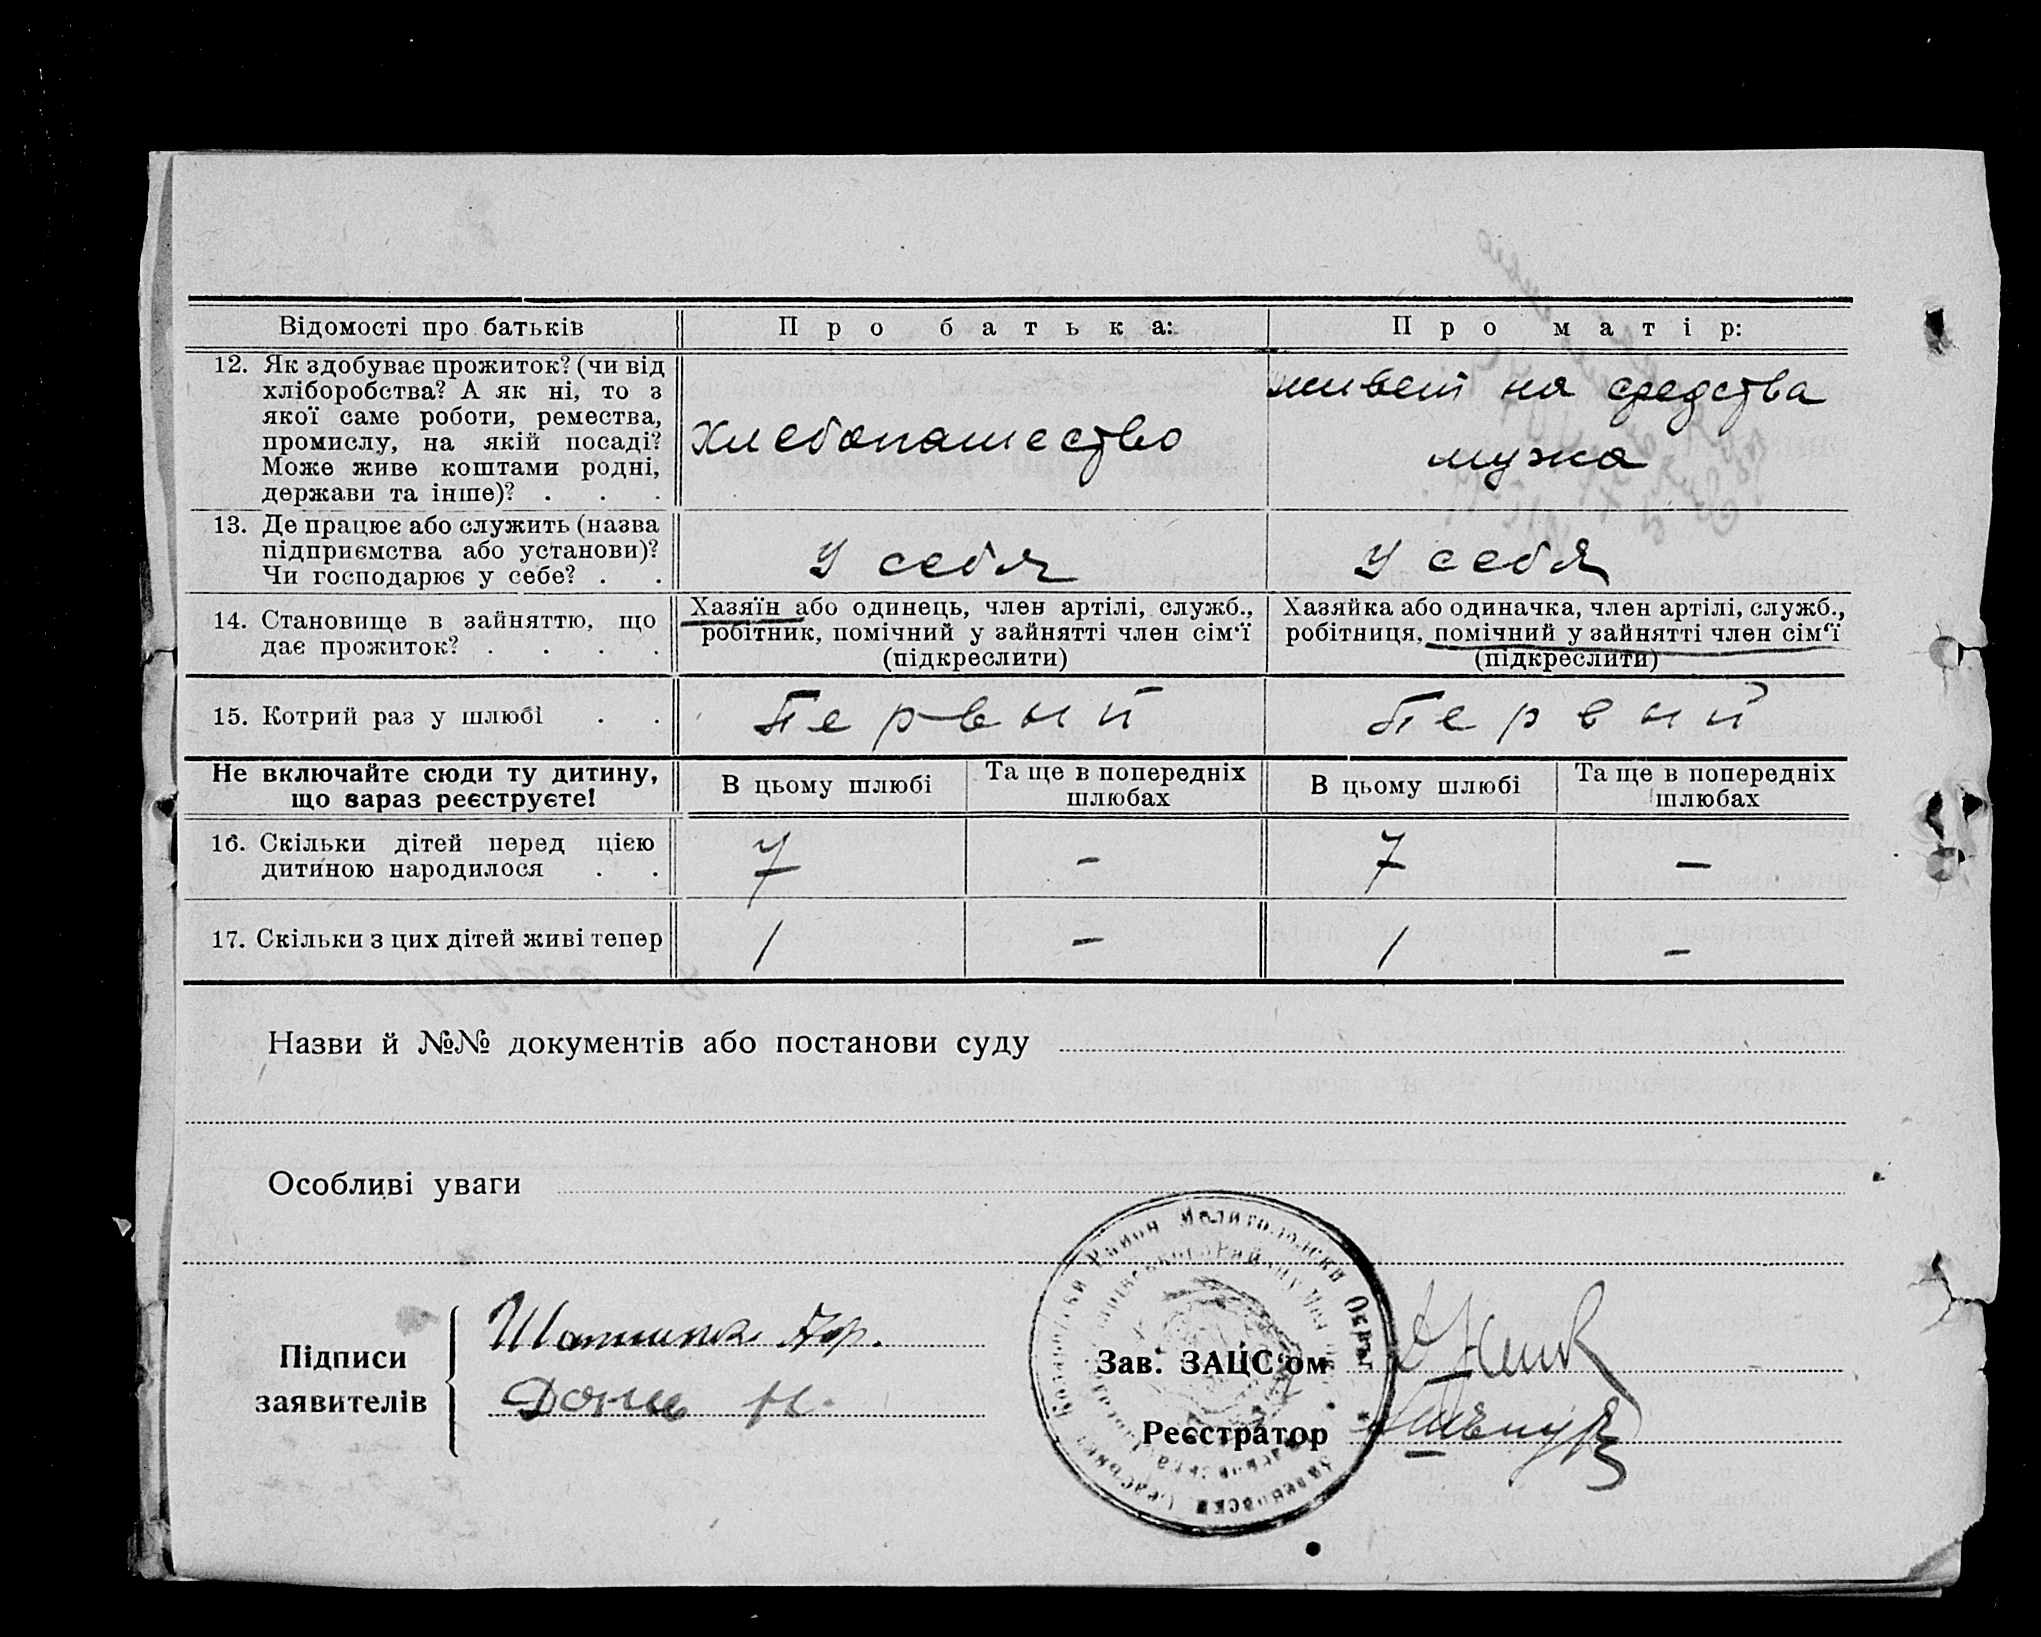 Відомості про батьків
Про батька:
Про матір:
12. Як здобуває прожиток? (чи від
хліборобства? А як ні, то з
якої саме роботи, ремества,
промислу, на якій посаді?
Може живе коштами родні,
держави та інше)? . . .
Хлебопашество
живет на средства
мужа
13. Де працює або служить (назва
підприємства або установи)?
Чи господарює у себе? . .
У себя
У себя
14. Становище в зайняттю, що
дає прожиток? . . . .
Хазяїн або одинець, член артілі, служб.,
робітник, помічний у зайнятті член сім'ї
(підкреслити)
Хазяйка або одиначка, член артілі, служб.,
робітниця, помічний у зайнятті член сім'ї
(підкреслити)
15. Котрий раз у шлюбі . .
Первый
Первый
Не включайте сюди ту дитину,
що зараз реєструєте!
В цьому шлюбі
Та ще в попередніх
шлюбах
В цьому шлюбі
Та ще в попередніх
шлюбах
16. Скільки дітей перед цією
дитиною народилося . .
7
–
7
–
17. Скільки з цих дітей живі тепер
1
–
1
–
Назви й №№ документів або постанови суду
Особливі уваги
Підписи
заявителів
Зав. ЗАЦС'ом
Реєстратор